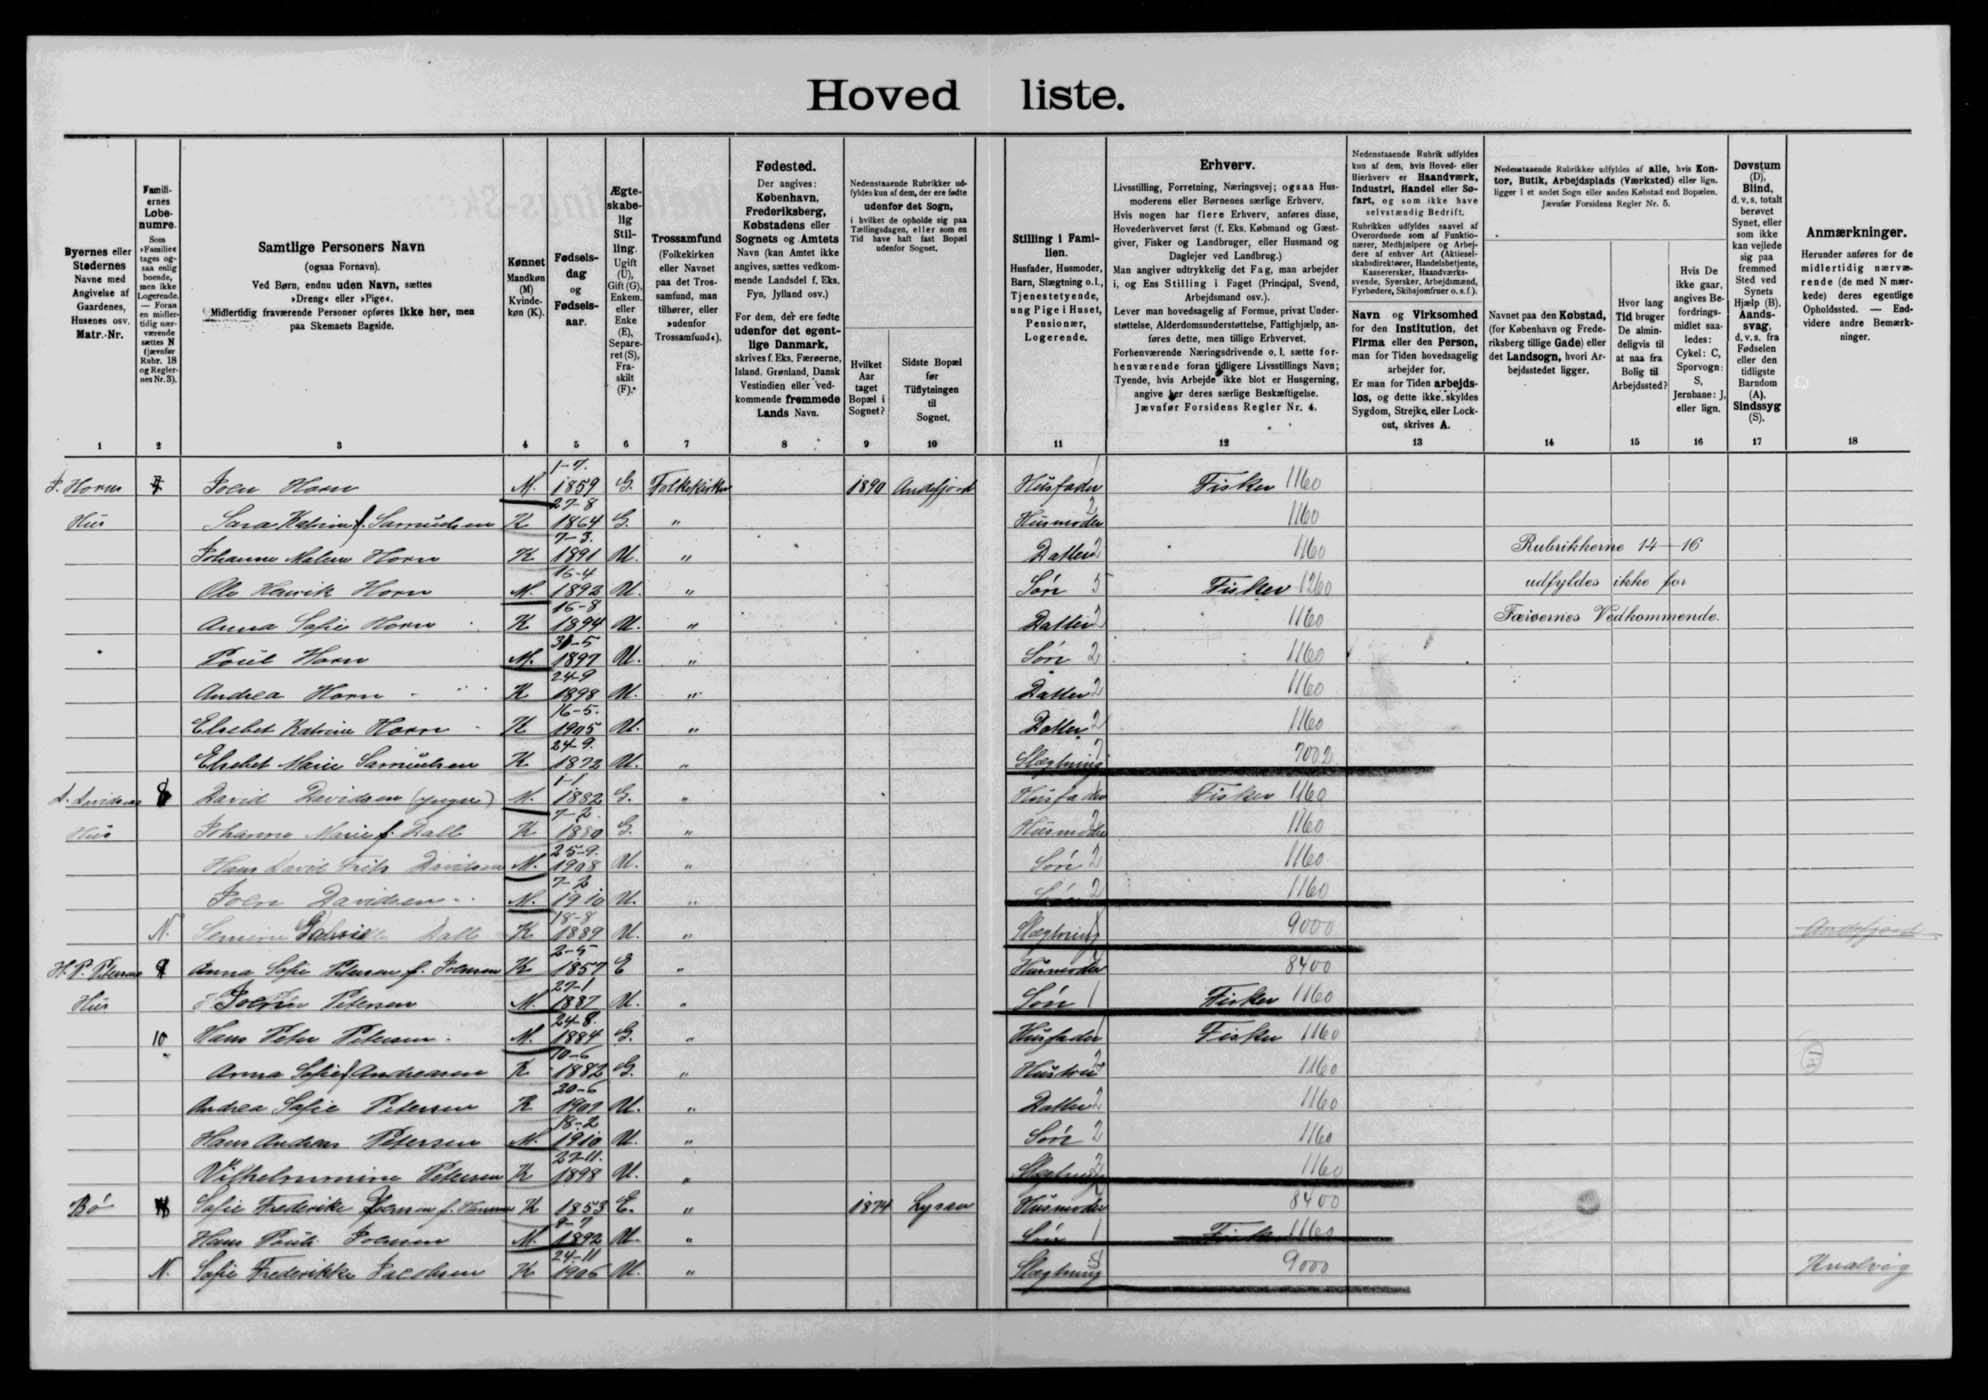 Hovedliste.
Byernes eller
Stedernes
Navne med
Angivelse af
Gaardenes,
Husenes osv.
Matr.-Nr.
Famili-
ernes
Løbe-
numre.
Som
»Familie«
tages og-
saa enlig
boende,
men ikke
Logerende.
— Foran
en midler-
tidig nær-
værende
sættes N
(jævnfør
Rubr. 18
og Regler-
nes Nr. 3).
Samtlige Personers Navn
(ogsaa Fornavn).
Ved Børn, endnu uden Navn, sættes
»Dreng« eller »Pige«.
Midlertidig fraværende Personer opføres ikke her, men
paa Skemaets Bagside.
Kønnet
Mandkøn
(M)
Kvinde-
køn (K).
Fødsels-
dag
og
Fødsels-
aar.
Ægte-
skabe-
lig
Stil-
ling.
Ugift
(U),
Gift (G),
Enkem.
eller
Enke
(E),
Separe-
ret (S),
Fra-
skilt
(F).
Trossamfund
(Folkekirken
eller Navnet
paa det Tros-
samfund, man
tilhører, eller
»udenfor
Trossamfund«).
Fødested.
Der angives:
København,
Frederiksberg,
Købstadens eller
Sognets og Amtets
Navn (kan Amtet ikke
angives, sættes vedkom-
mende Landsdel f. Eks.
Fyn, Jylland osv.)
For dem, der ere fødte
udenfor det egent-
lige Danmark,
skrives f. Eks. Færøerne,
Island, Grønland, Dansk
Vestindien eller ved-
kommende fremmede
Lands Navn.
Nedenstaaende Rubrikker ud-
fyldes kun af dem, der ere fødte
udenfor det Sogn,
i hvilket de opholde sig paa
Tællingsdagen, eller som en
Tid have haft fast Bopæl
udenfor Sognet.
Hvilket
Aar
taget
Bopæl i
Sognet?
Sidste Bopæl
før
Tilflytningen
til
Sognet.
Stilling i Fami-
lien.
Husfader, Husmoder,
Barn, Slægtning o.l.,
Tjenestetyende,
ung Pige i Huset,
Pensionær,
Logerende.
Erhverv.
Livsstilling, Forretning, Næringsvej; ogsaa Hus-
moderens eller Børnenes særlige Erhverv.
Hvis nogen har flere Erhverv, anføres disse,
Hovederhvervet først (f. Eks. Købmand og Gæst-
giver, Fisker og Landbruger, eller Husmand og
Daglejer ved Landbrug.)
Man angiver udtrykkelig det Fag, man arbejder
i, og Ens Stilling i Faget (Principal, Svend,
Arbejdsmand osv.).
Lever man hovedsagelig af Formue, privat Under-
støttelse, Alderdomsunderstøttelse, Fattighjælp, an-
føres dette, men tillige Erhvervet.
Forhenværende Næringsdrivende o. l. sætte for-
henværende foran tidligere Livsstillings Navn;
Tyende, hvis Arbejde ikke blot er Husgerning,
angive her deres særlige Beskæftigelse.
Jævnfør Forsidens Regler Nr. 4.
Nedenstaaende Rubrik udfyldes
kun af dem, hvis Hoved- eller
Bierhverv er Haandværk,
Industri, Handel eller Sø-
fart, og som ikke have
selvstændig Bedrift.
Rubrikken udfyldes saavel af
Overordnede som af Funktio-
nærer, Medhjælpere og Arbej-
dere af enhver Art (Aktiesel-
skabsdirektører, Handelsbetjente,
Kasserersker, Haandværks-
svende, Syersker, Arbejdsmænd,
Fyrbødere, Skibsjomfruer o. s. f.).
Navn og Virksomhed
for den Institution, det
Firma eller den Person,
man for Tiden hovedsagelig
arbejder for.
Er man for Tiden arbejds-
løs, og dette ikke skyldes
Sygdom, Strejke, eller Lock-
out, skrives A.
Nedenstaaende Rubrikker udfyldes af alle, hvis Kon-
tor, Butik, Arbejdsplads (Værksted) eller lign.
ligger i et andet Sogn eller anden Købstad end Bopælen.
Jævnfør Forsidens Regler Nr. 5.
Navnet paa den Købstad,
(for København og Frede-
riksberg tillige Gade) eller
det Landsogn, hvori Ar-
bejdsstedet ligger.
Hvor lang
Tid bruger
De almin-
deligvis til
at naa fra
Bolig til
Arbejdssted?
Hvis De
ikke gaar,
angives Be-
fordrings-
midlet saa-
ledes:
Cykel: C,
Sporvogn:
S,
Jernbane: J,
eller lign.
Døvstum
(D),
Blind,
d. v. s. totalt
berøvet
Synet, eller
som ikke
kan vejlede
sig paa
fremmed
Sted ved
Synets
Hjælp (B).
Aands-
svag,
d. v. s. fra
Fødselen
eller den
tidligste
Barndom
(A).
Sindssyg
(S).
Anmærkninger.
Herunder anføres for de
midlertidig nærvæ-
rende (de med N mær-
kede) deres egentlige
Opholdssted. — End-
videre andre Bemærk-
ninger.
1 2 3 4 5 6 7 8 9 10 11 12 13 14 15 16 17 18
J. Horns 7 Joen Horn M. 1-7. 1859 G. Folkekirken 1890 Andefjord Husfader 1 Fisker 1160
Hus Sara Katrine f. Samuelsen K 27-8 1864 G. " Husmoder 2 1160
Johanne Malene Horn K 7-3. 1891 U. " Datter 2 1160 Rubrikkerne 14-16
Ole Henrik Horn M. 15-4 1892 U. " Søn 5 Fisker 1260 udfyldes ikke for
Anna Sofie Horn K 16-8 1894 U. " Datter 2 1160 Færøernes Vedkommende.
Poul Horn M. 31-5 1897 U. " Søn 2 1160
Andrea Horn K 24-9 1898 U. " Datter 2 1160
Elsebet Katrine Horn K 16-5. 1905 U. " Datter 2 1160
Elsebet Marie Samuelsen K 24-9. 1872 U. " Slægtning 7002
D. Davidsens 8 David Davidsen (yngre) M. 1-1 1882 G. " Husfader 1 Fisker 1160
Hus Johanne Marie f. Dall K 7-2. 1880 G. " Husmoder 2 1160
Hans David Davidsen M. 25-9. 1908 U. " Søn 2 1160
Joen Davidsen M. 7-2 1910 U. " Søn 2 1160
N. Dall K 18-8 1889 U. " Slægtning 9000 Andefjord
H. P. Petersens 9 Anna Sofie Petersen f. Joensen K 2-5 1857 E " Husmoder 8400
Hus Petersen M. 27-1 1887 U. " Søn 1 Fisker 1160
10 Hans Peter Petersen M. 24-8. 1884 G. " Husfader 1 Fisker 1160
Anna Sofie f. Andreasen K 10-6 1882 G. " Hustru 2 1160
Andrea Sofie Petersen K 20-6 1907 U. " Datter 2 1160
Hans Andreas Petersen M. 18-2 1910 U. " Søn 2 1160
Vilhelmmine Petersen K 27-11. 1898 U. " Slægtning 2 1160
Bø Sofie Frederike Joensen f. Hansen K 1853 E. " 1874 Husmoder 8400
Hans Pauli Joensen M. 1892 U. " Søn 1 Fisker 1160
N. Sofie Frederikke Jacobsen K 24-11 1906 U. " Slægtning 9000 Kvalvig